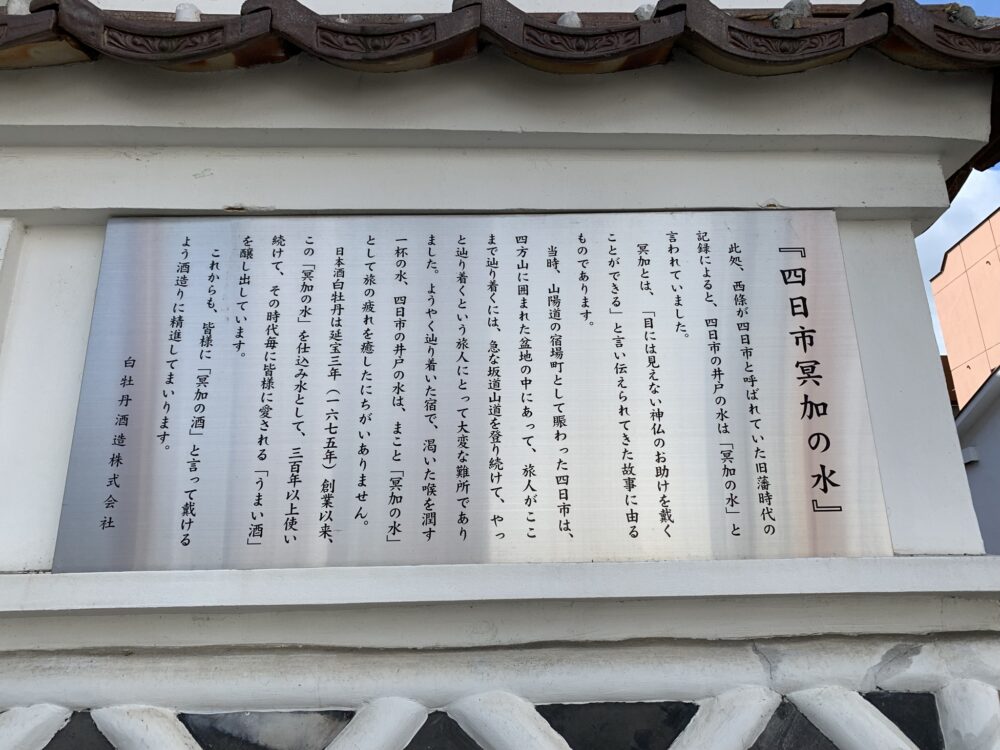 『四日市冥加の水』
此処、西條が四日市と呼ばれていた旧藩時代の
記録によると、四日市の井戸の水は「冥加の水」と
言われていました。
冥加とは、「目には見えない神仏のお助けを戴く
ことができる」と言い伝えられてきた故事に由る
ものであります。
当時、山陽道の宿場町として賑わった四日市は、
四方山に囲まれた盆地の中にあって、旅人がここ
まで辿り着くには、急な坂道山道を登り続けて、やっ
と辿り着くという旅人にとって大変な難所であり
ました。ようやく辿り着いた宿で、渇いた喉を潤す
一杯の水、四日市の井戸の水は、まこと「冥加の水」
として旅の疲れを癒したにちがいありません。
日本酒白牡丹は延宝三年（一六七五年）創業以来、
この「冥加の水」を仕込み水として、三百年以上使い
続けて、その時代毎に皆様に愛される「うまい酒」
を醸し出しています。
これからも、皆様に「冥加の酒」と言って戴ける
よう酒造りに精進してまいります。
白牡丹酒造株式会社